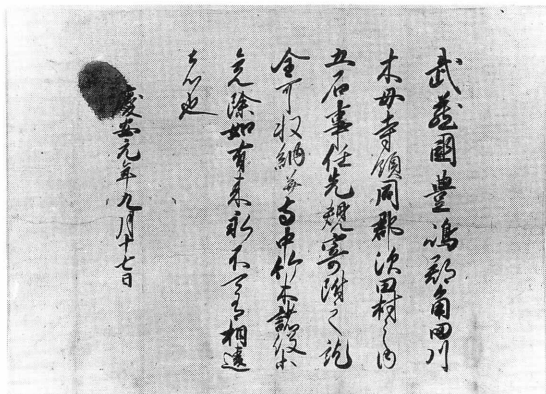 武蔵國豊嶋郡角田川
木母寺領同郡次田村之内
五石事任先規寄附之訖
全可収納并寺中竹木諸役等
免除如有来永不可有相違
者也
慶安元年九月十七日